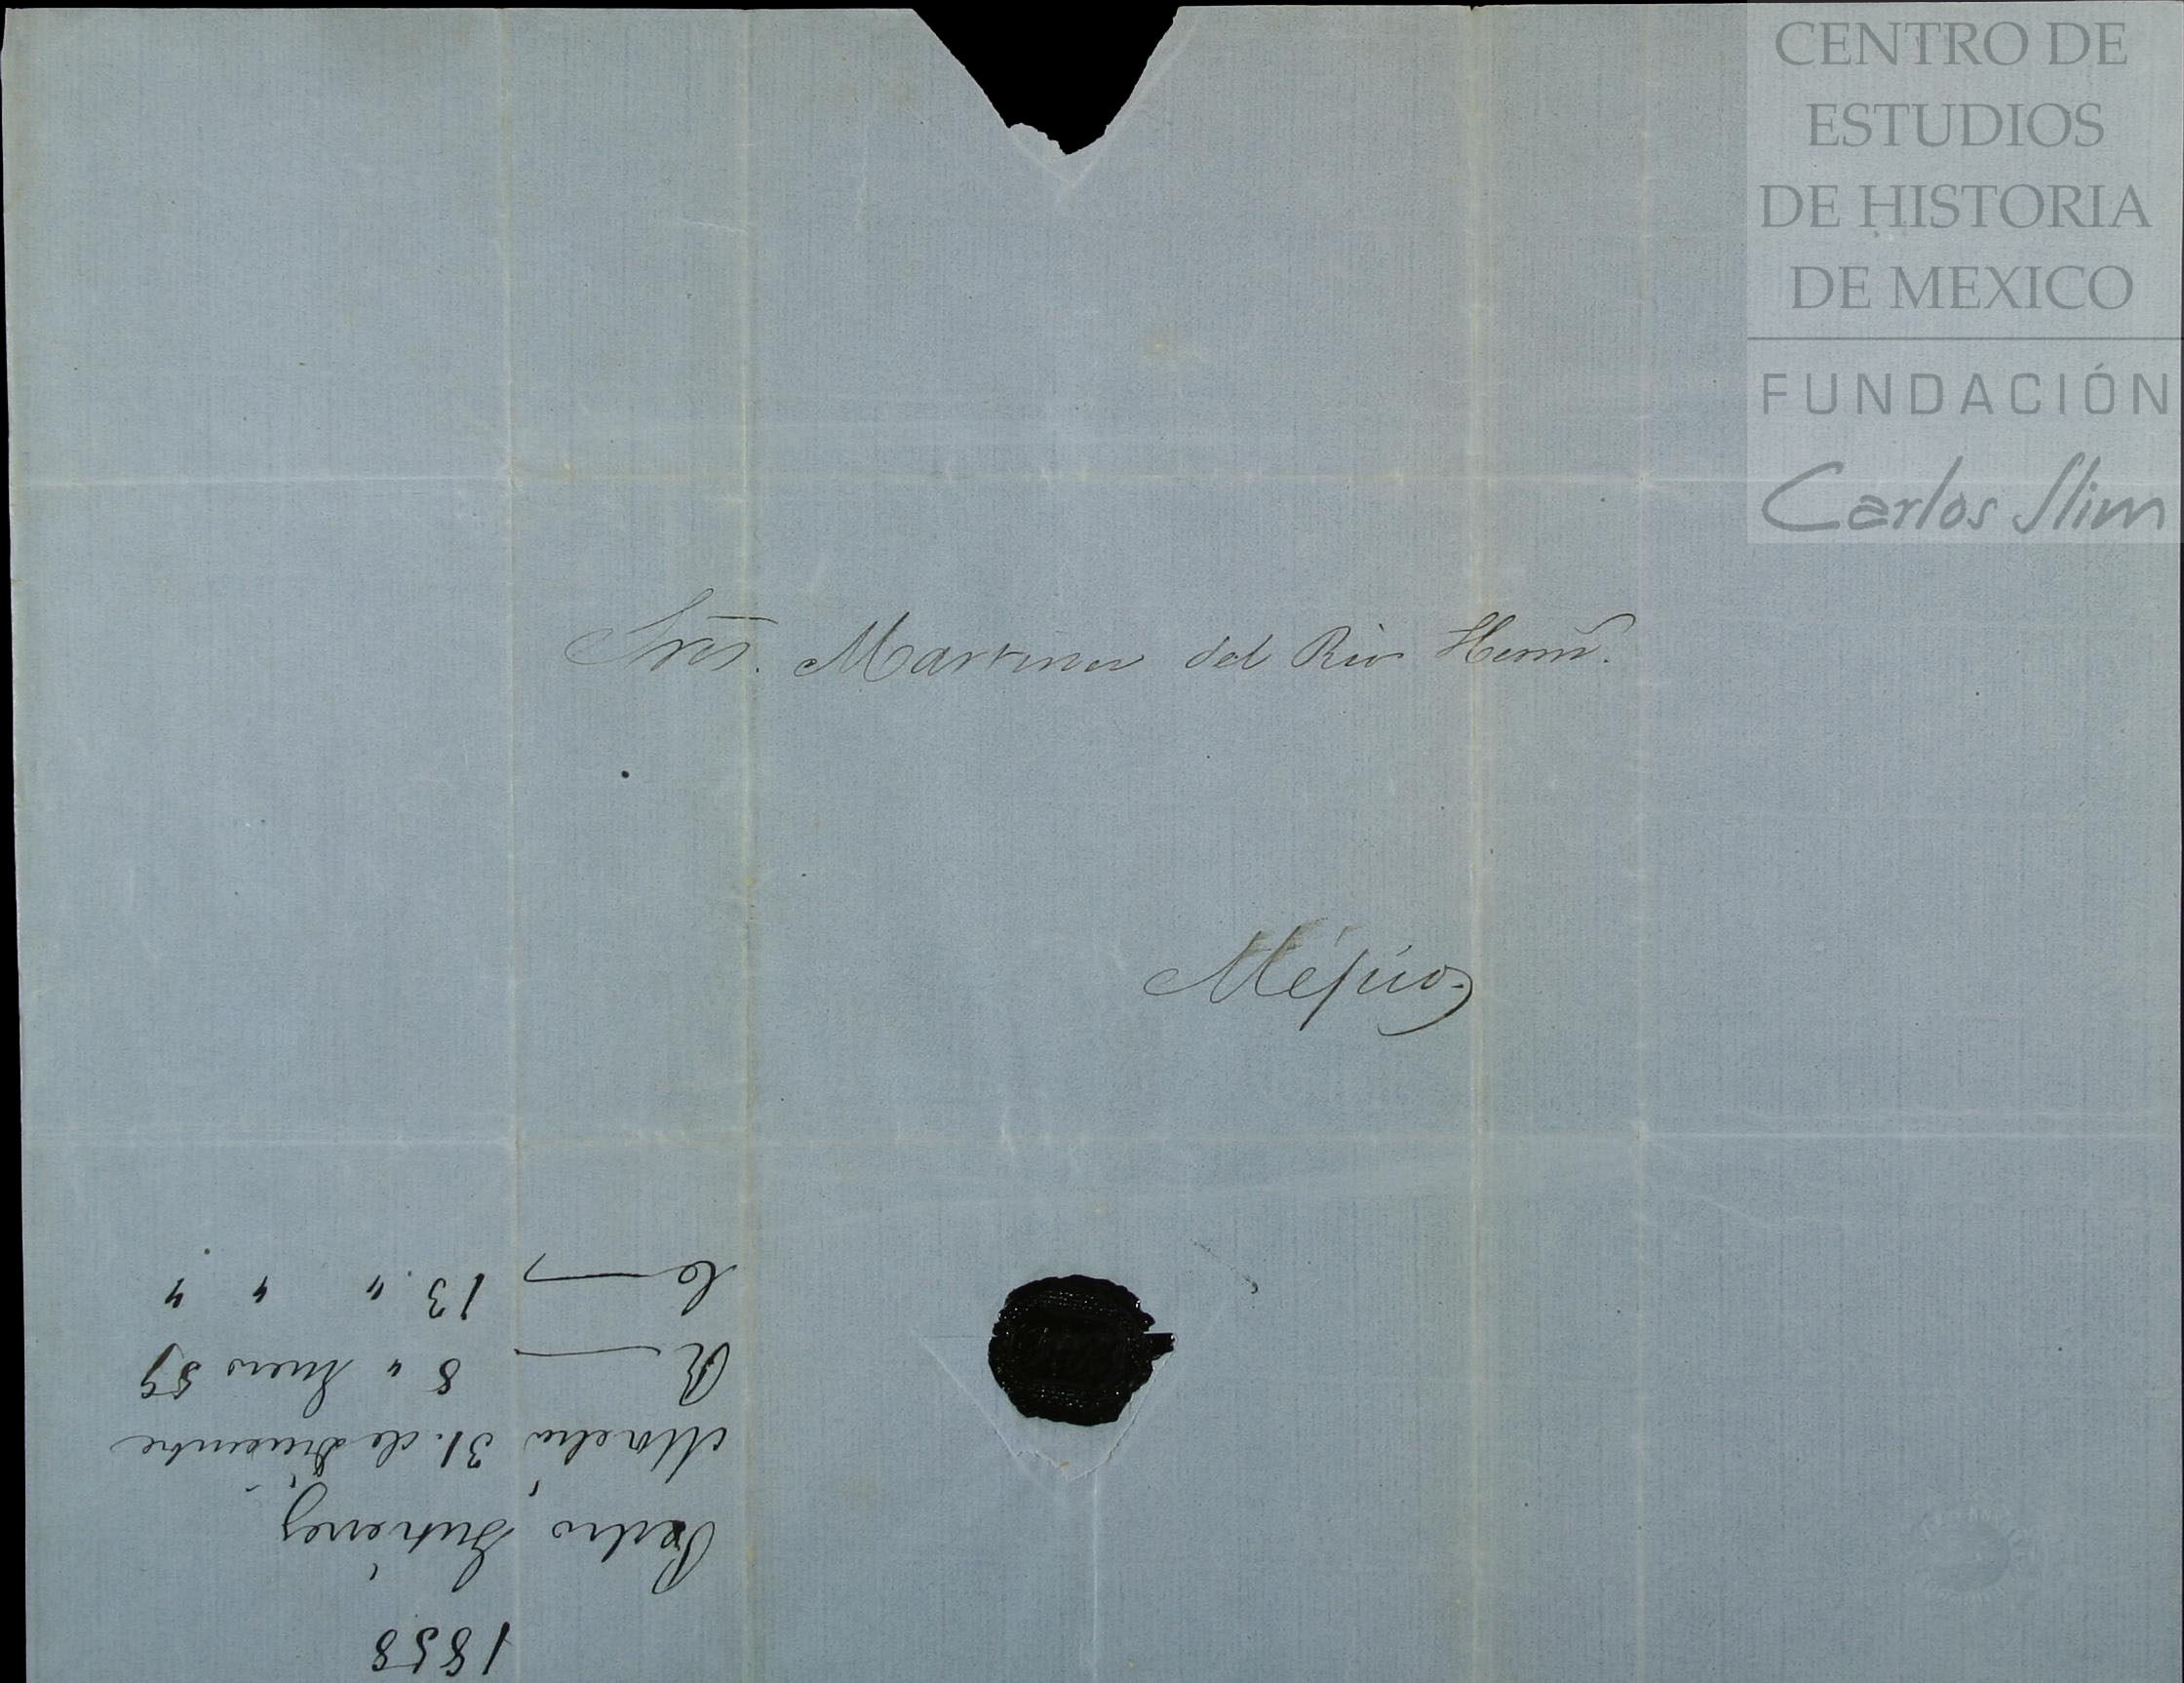 CENTRO DE
ESTUDIOS
DE HISTORIA
DE MEXICO
FUNDACIÓN
Carlos Slim
Sres. Martinez del Rio Herms.
Méjico
1858
Pedro Gutierrez
Morelia 31. de Diciembre
R 8 " Enero 59
C 13 " " "